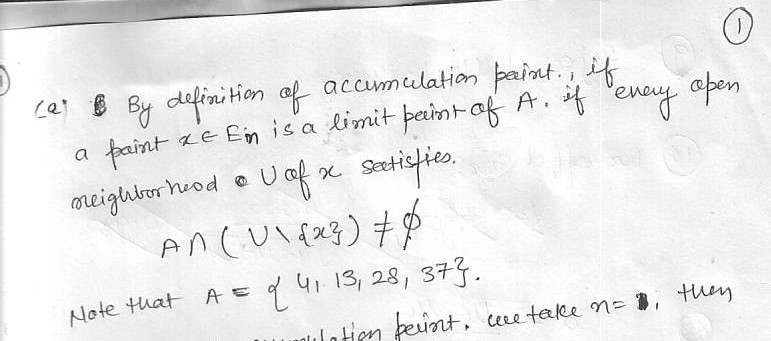 1
(a) By definition of accumulation point., if
a point x ∈ En is a limit point of A. if every open
neighborhood U of x satisfies.
A ∩ (U \ {x}) ≠ ∅
Note that A = { 4, 13, 28, 37}.
point. we take n= 1, then